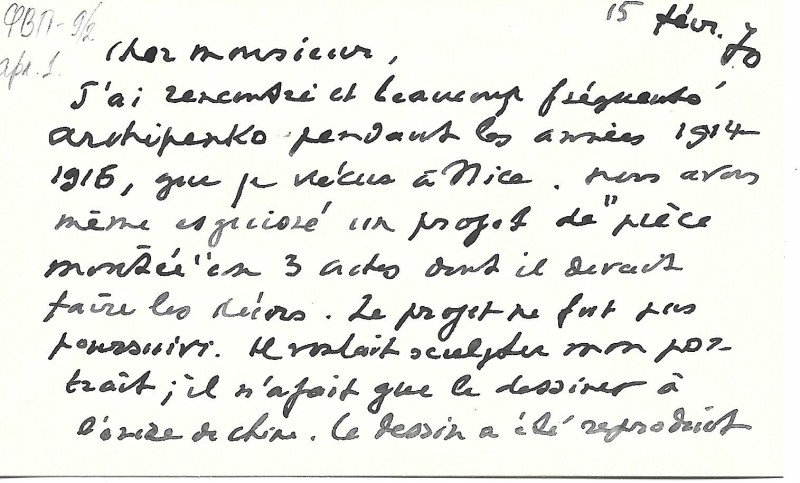 ФВП-9/2
арк. 1.
15 févr. 70
Cher monsieur,
J'ai rencontré et beaucoup fréquenté
archipenko pendant les années 1914-
1916, que je vécus à Nice. nous avons
même esquissé un projet de "pièce
montée" en 3 actes dont il devait
faire les décors. Le projet ne fut pas
poursuivi. Il voulait sculpter mon por-
trait; il n'a fait que le dessiner à
l'encre de chine. Le dessin a été reproduit